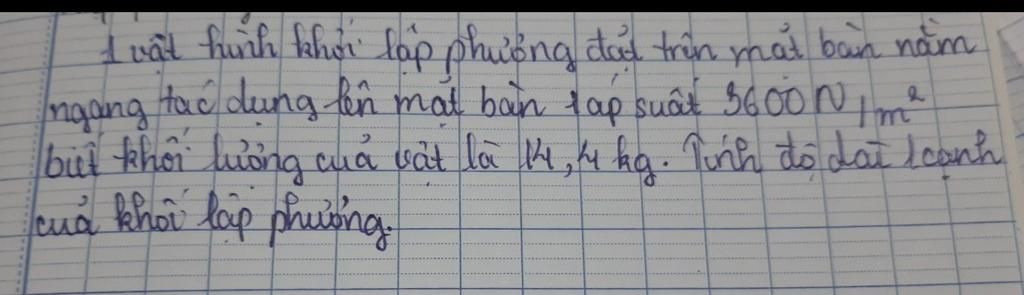 1 vật hình khối lập phương đặt trên mặt bàn nằm
ngang tác dụng lên mặt bàn 1 áp suất 3600N/m²
biết khối lượng của vật là 14,4 kg. Tính độ dài 1 cạnh
của khối lập phương.